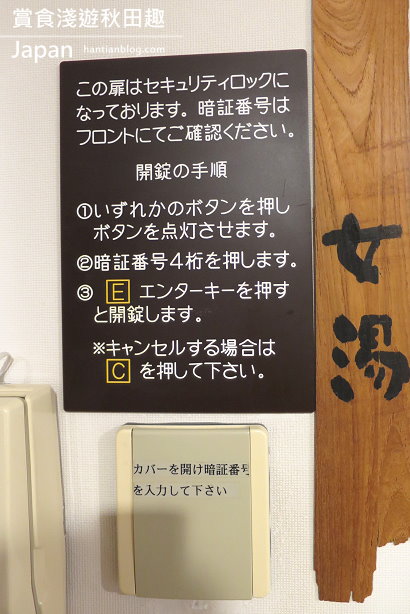 賞食淺遊秋田趣
Japan hantianblog.com
この扉はセキュリティロックに
なっております。暗証番号は
フロントにてご確認ください。
開錠の手順
①いずれかのボタンを押し
ボタンを点灯させます。
②暗証番号4桁を押します。
③ E エンターキーを押す
と開錠します。
※キャンセルする場合は
C を押して下さい。
女湯
カバーを開け暗証番号
を入力して下さい